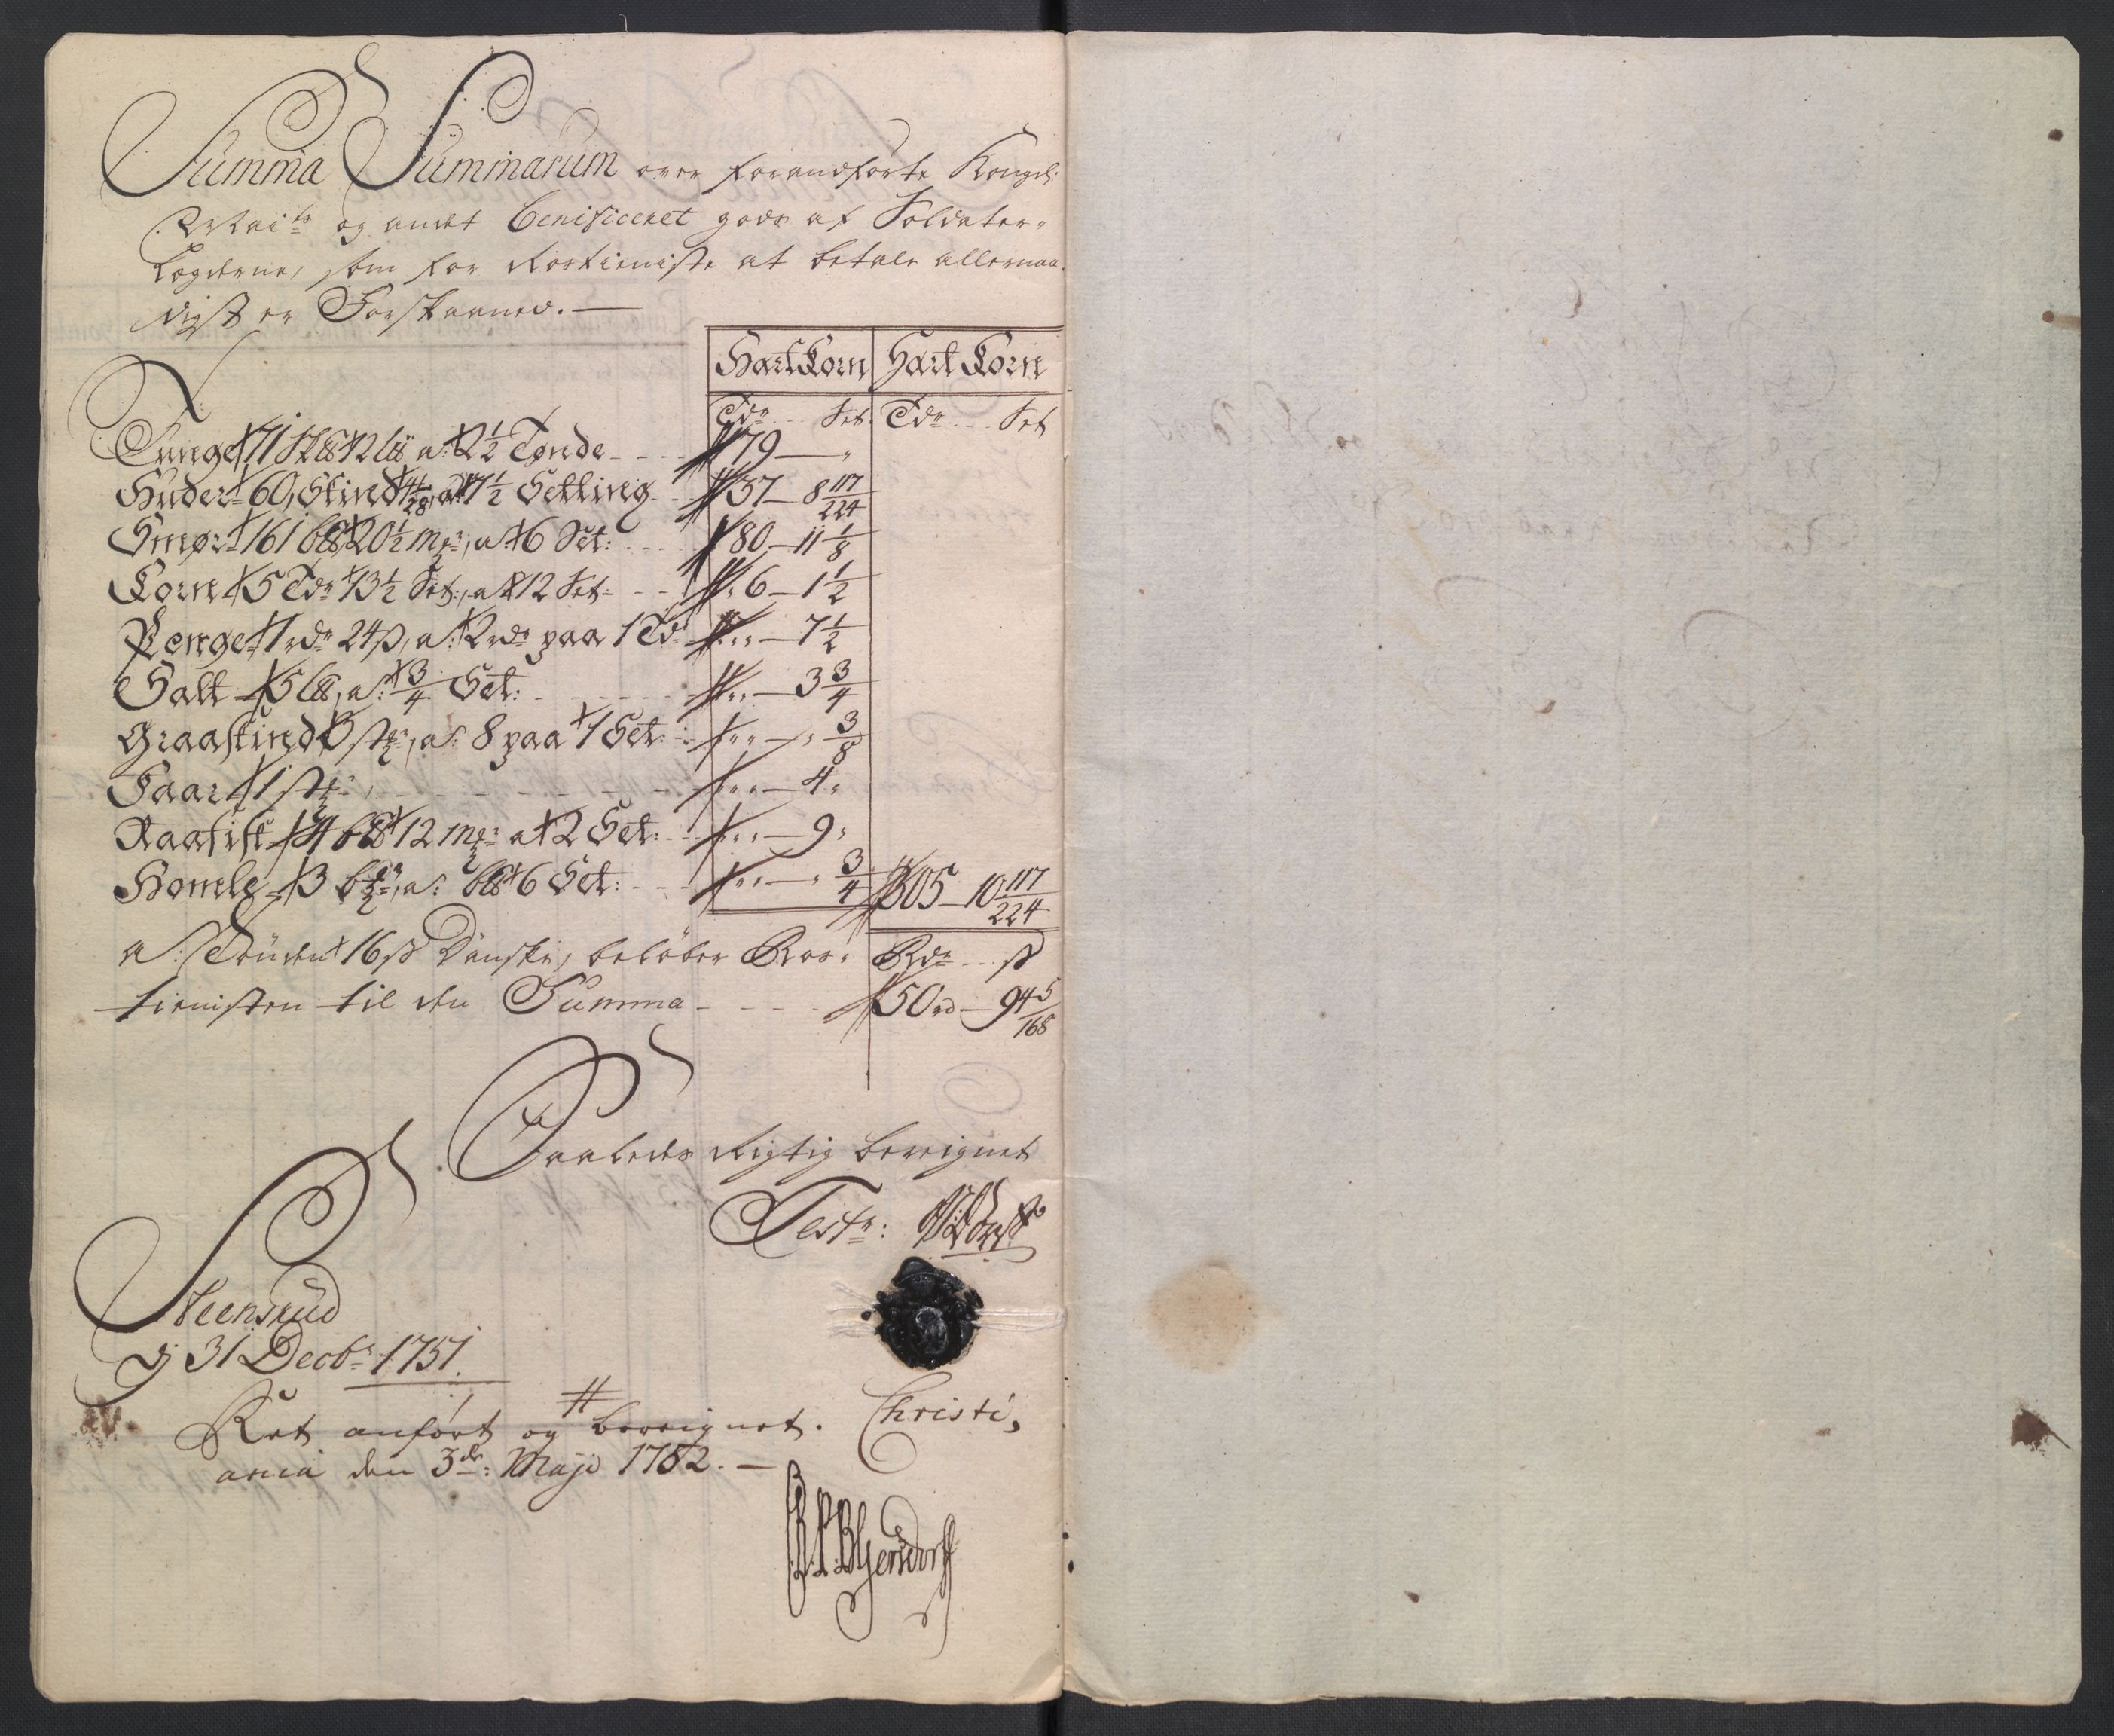 Summa Summarum over foranførte Kongel:
Maits og andet beneficeret gods af Soldater-
Lægderne, som for Rostieniste at betale allernaa-
digst er Forskaaned. —
HartKorn Hart Korn
Tdr Set. Tdr Set
Tunge 71 12 a: 2 1/2 Tønde 179 — "
Huder 60, Skind 4/28 a: 7 1/2 Setting 37 — 8 117/224
Smør 161 20 1/2 mkr, a: 6 Set: 80 — 11 1/8
Korn 5 Tdr 13 1/2 Set:, a: 12 Set 6 — 1 1/2
Penge 1 rdr 24 ß, a: 2 rdr paa 1 Td " — 7 1/2
Salt 5 a: 3/4 Set: " — 3 3/4
Graaskind 3 a: 8 paa 1 Set: " — " 3/8
Faar 1 " — 4 "
Raafisk 4 12 mkr a 2 Set: " — 9 "
Homle 3 a: 6 Set: " — " 3/4 305 — 10 117/224
a: Tønden 16 ß Danske, beløber Ros- Rdr ß
tienisten til den Summa 50 rd — 94 5/168
Saaledes Rigtig bereignet
Test:
Steensrud
dj 31 Decbr 1751.
Ret anført og bereignet. Christi-
ania den 3de: Maji 1752. —